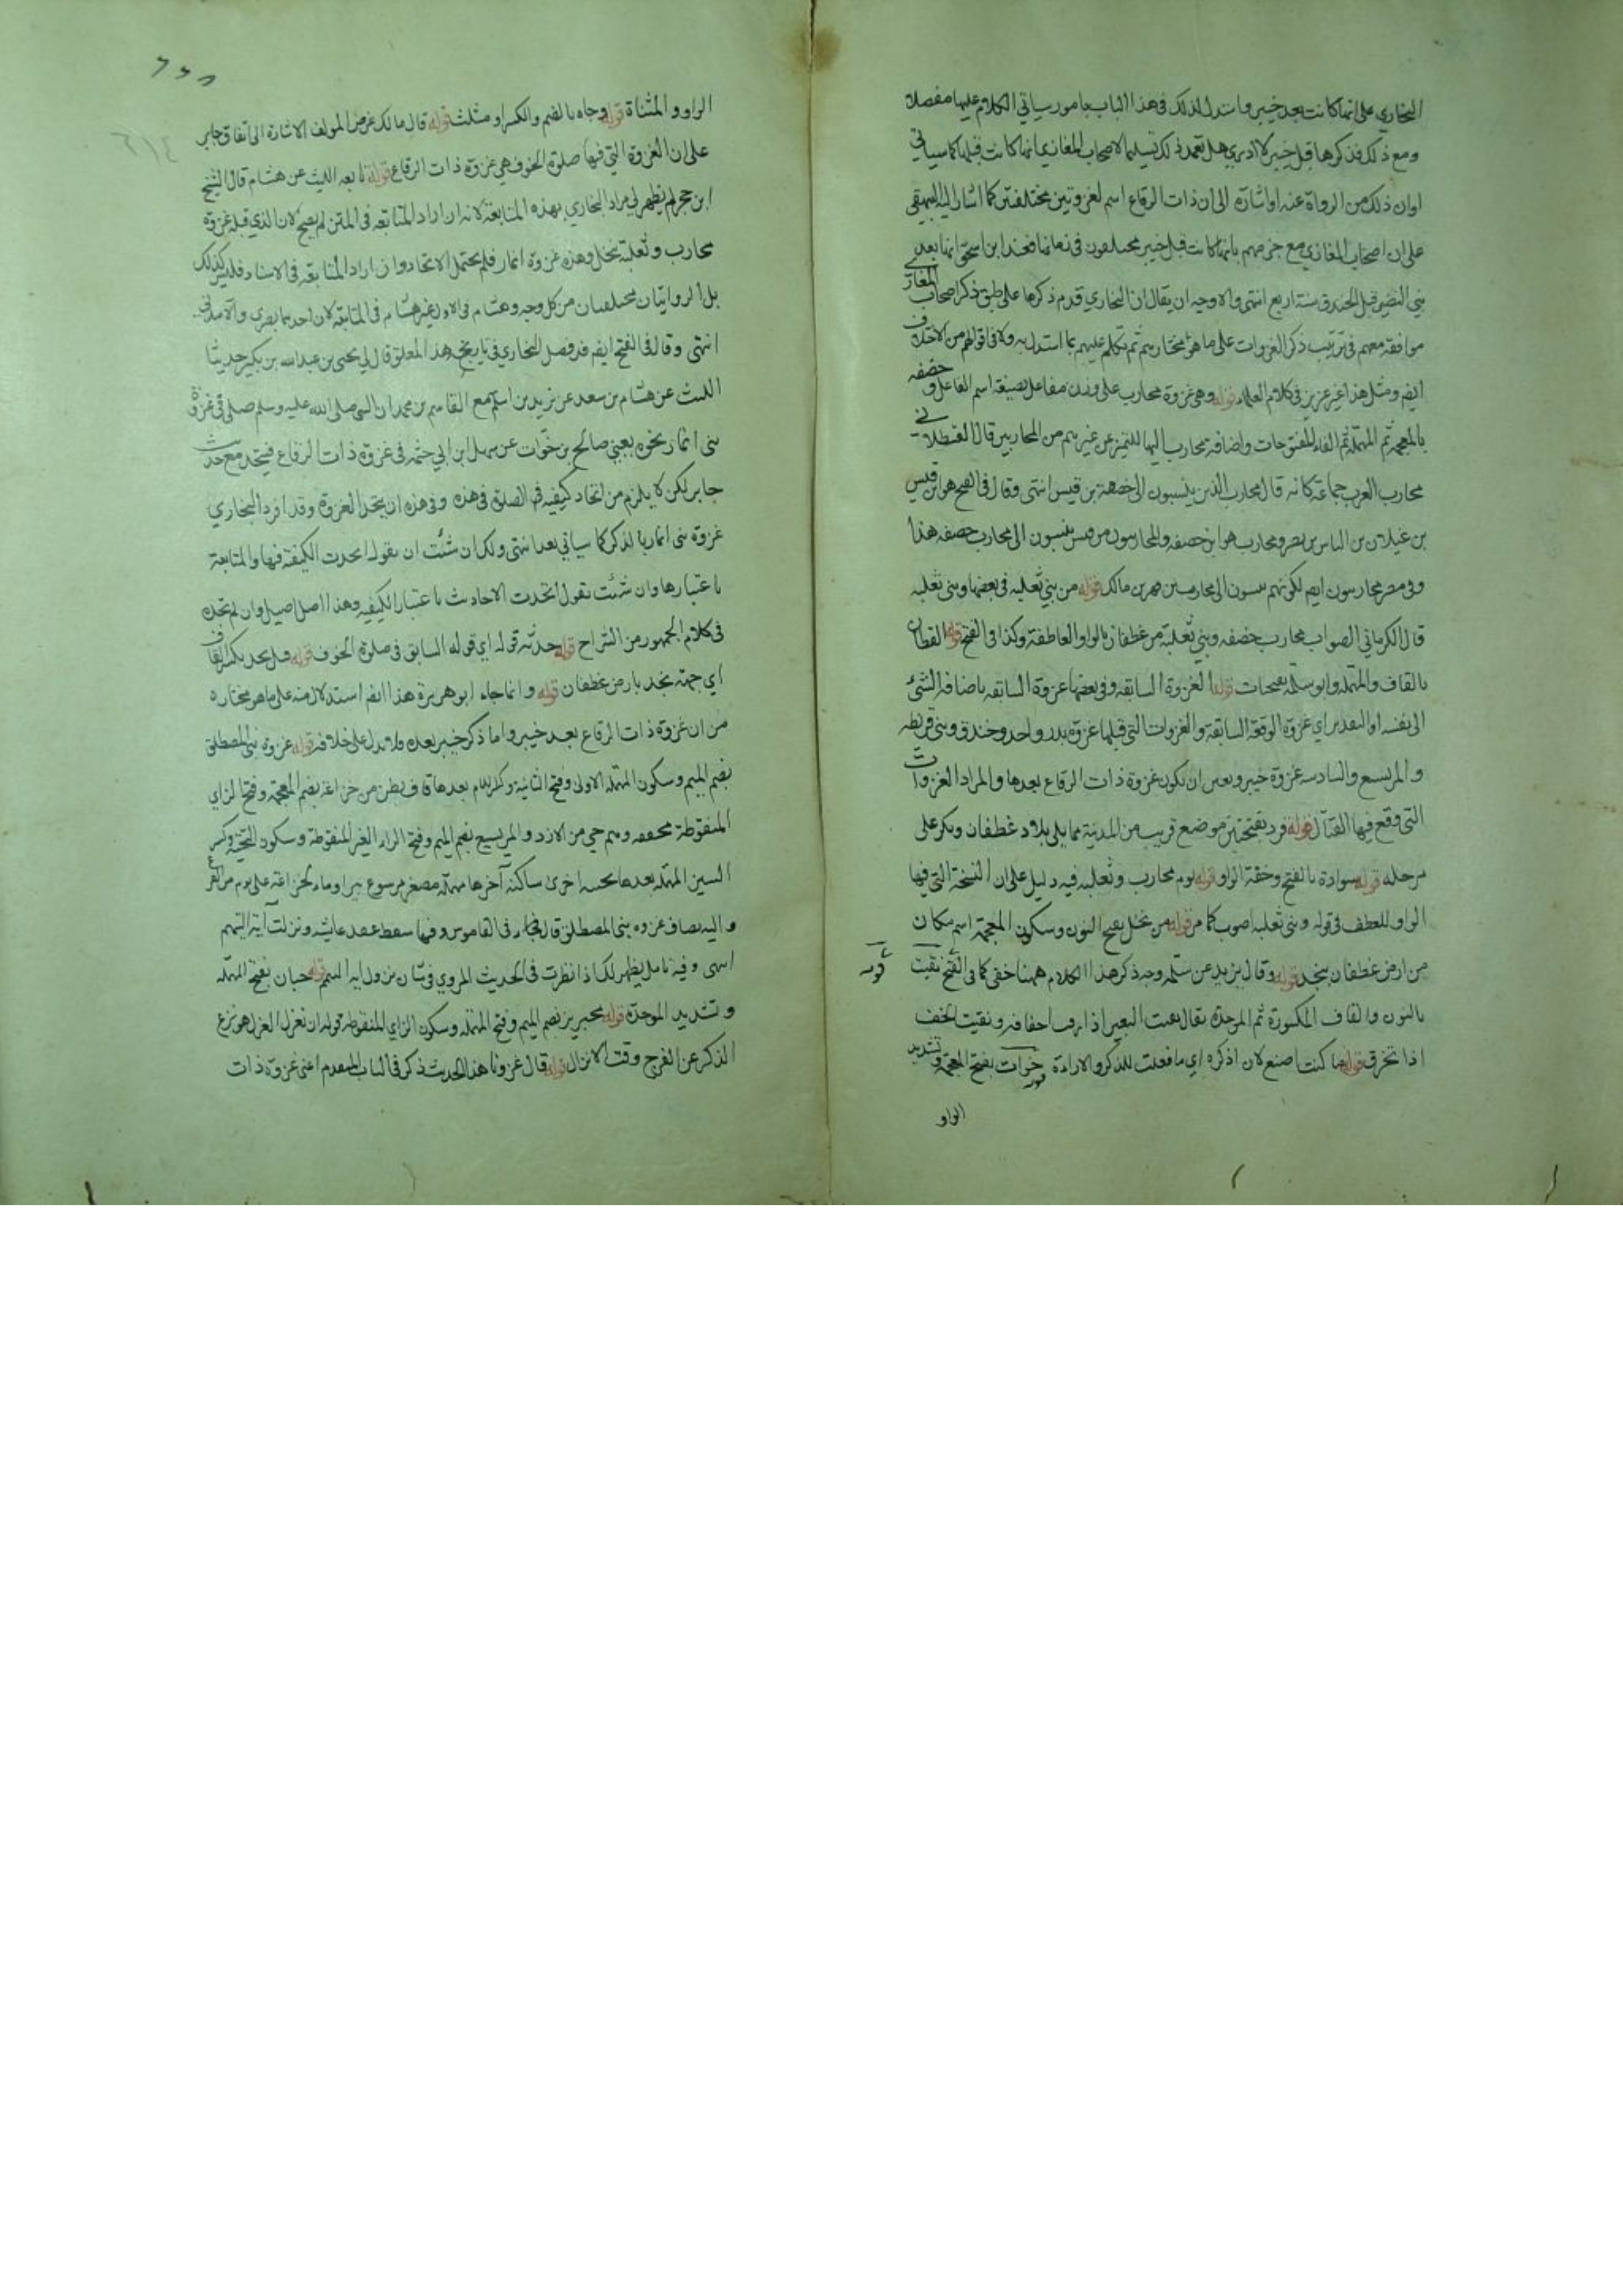 البخاري على انها كانت بعد خيبر واستدل لذلك في هذا الباب بامور سياتي الكلام عليها مفصلا
ومع ذلك فذكرها قبل خيبر لا ادري هل تعمد ذلك تسليما لاصحاب المغازي انها كانت قبلها كما سياتي
او ان ذلك من الرواة عنه او اشارة الى ان ذات الرقاع اسم لغزوتين مختلفتين كما اشار اليه البيهقي
على ان اصحاب المغازي مع جزمهم بانها كانت قبل خيبر مختلفون في زمانها فعند ابن اسحق انها بعد
بني النضير قبل الخندق سنة اربع انتهى والاوجه ان يقال ان البخاري قدم ذكرها على طبق ذكر اصحاب المغازي
موافقة معهم في ترتيب ذكر الغزوات على ما هو مختارهم ثم تكلم عليهم بما استدل به ولا في اقوالهم من الاختلاف
ايضم ومثل هذا غير عزيز في كلام العلماء قوله وهي غزوة محارب على وزن مفاعل بصيغة اسم الفاعل وخصفه
بالمعجمة ثم المهملة ثم الفاء المفتوحات واضافة محارب اليها للتميز عن غيرهم من المحاربين قال القسطلاني
محارب العرب جماعة كانه قال محارب الذين ينسبون الى خصفة بن قيس انتهى وقال في الفتح هو ابن قيس
بن غيلان بن الياس بن مضر ومحارب هو ابن خصفه والمحاربيون من قيس ينسبون الى محارب خصفه هذا
وفي مضر محاربيون ايضم لكونهم ينسبون الى محارب بن فهر بن مالك قوله من بني ثعلبه في بعضها وبني ثعلبه
قال الكرماني الصواب محارب خصفه وبني ثعلبة من غطفان بالواو العاطفة وكذا في الفتح قوله القطان
بالقاف والمهملة وابو سلمة بفتحات قوله الغزوة السابقه وفي بعضها غزوة السابقه باضافة الشئ
الى نفسه او التقدير اي غزوة الوقعة السابقة والغزوات التي قبلها غزوة بدر واحد وخندق وبني قريظه
والمريسع والسادسه غزوة خيبر وتعين ان تكون غزوة ذات الرقاع بعدها والمراد الغزوات
التي وقع فيها القتال قوله قرد بفتحتين موضع قريب من المدينة مما يلي بلاد غطفان وبكر على
مرحله قوله سوادة بالفتح وخفة الواو قوله يوم محارب وثعلبه فيه دليل على ان النسخة التي فيها
الواو للعطف في قوله وبني ثعلبه اصوب كما مر قوله من نخل بفتح النون وسكون المعجمة اسم مكان
من ارض غطفان بنجد قوله وقال يزيد عن سلمه وجه ذكر هذا الكلام ههنا خفي كما في الفتح نقبت
قوله
بالنون والقاف المكسورة ثم الموحدة يقال نقبت البعير اذا رقت اخفافه ونقبت الخف
اذا تخرق قوله ما كنت اصنع لان اذكره اي ما فعلت للذكر والارادة خوات بفتح المعجمة وتشديد
الواو
الواو والمثناة قوله وجاه بالضم والكسر او مثلث قوله قال مالك غرض المولف الاشارة الى اتفاق جابر
على ان الغزوة التي فيها صلوة الخوف هي غزوة ذات الرقاع قوله تابعه الليث عن هشام قال الشيخ
ابن حجر لم يظهر لي مراد البخاري بهذه المتابعة لانه ان اراد المتابعه في المتن لم يصح لان الذي قبله غزوة
محارب وثعلبة بنخل وهذه غزوة انمار فلم يحتمل الاتحاد وان اراد المتابعه في الاسناد فليس كذلك
بل الروايتان مختلفتان من كل وجه وهشام في الاول غير هشام في المتابعة لان احدهما بصري والآخر مدني
انتهى وقال في الفتح ايضم قد وصل البخاري في تاريخه هذا المعلق قال لي يحيى بن عبد الله بن بكير حدثنا
الليث عن هشام بن سعد عن زيد بن اسلم سمع القاسم بن محمد ان النبي صلى الله عليه وسلم صلى في غزوة
بني انمار نحوه يعني صالح بن خوات عن سهل ابن ابي حثمه في غزوة ذات الرقاع فيتحد مع حديث
جابر لكن لا يلزم من اتحاد كيفيه في الصلوة في هذه وفي هذه ان يتحد الغزوة وقد افرد البخاري
غزوة بني انمار بالذكر كما سياتي بعد انتهى ولك ان شئت ان تقول اتحدت الكيفية فيها والمتابعة
باعتبارها وان شئت تقول اتحدت الاحاديث باعتبار الكيفيه وهذا اصل اصيل وان لم تجده
في كلام الجمهور من الشراح قوله حدثه قوله اي قوله السابق في صلوة الخوف قوله قبل نجد بكسر القاف
اي جهة نجد بارض غطفان قوله وانما جاء ابو هريرة هذا ايضم استدلال منه على ما هو مختاره
من ان غزوة ذات الرقاع بعد خيبر واما ذكر خيبر بعده فلا يدل على خلافه قوله غزوة بني المصطلق
بضم الميم وسكون المهملة الاولى وفتح الثانية وكسر اللام بعدها قاف بطن من خزاعة بضم المعجمة وفتح الزاي
المنقوطة مخففه وهم حي من الازد والمريسيع بضم الميم وفتح الراء الغير المنقوطة وسكون التحتية وكسر
السين المهملة بعدها تحتيه اخرى ساكنة آخرها مهملة مصغر مرسوع بير او ماء لخزاعة على يوم من الفرع
واليه يضاف غزوه بني المصطلق قال في القاموس وفيها سقط عقد عايشه ونزلت آية التيمم
انتهى وفيه تامل يظهر لك اذا نظرت في الحديث المروي في شان نزول اية التيمم قوله حبان بفتح المهملة
وتشديد الموحدة قوله محيريز بضم الميم وفتح المهملة وسكون الزاي المنقوطه قوله ان نعزل العزل هو نزع
الذكر عن الفرج وقت الانزال قوله قال غزونا هذا الحديث ذكر في الباب المتقدم اعني غزوة ذات